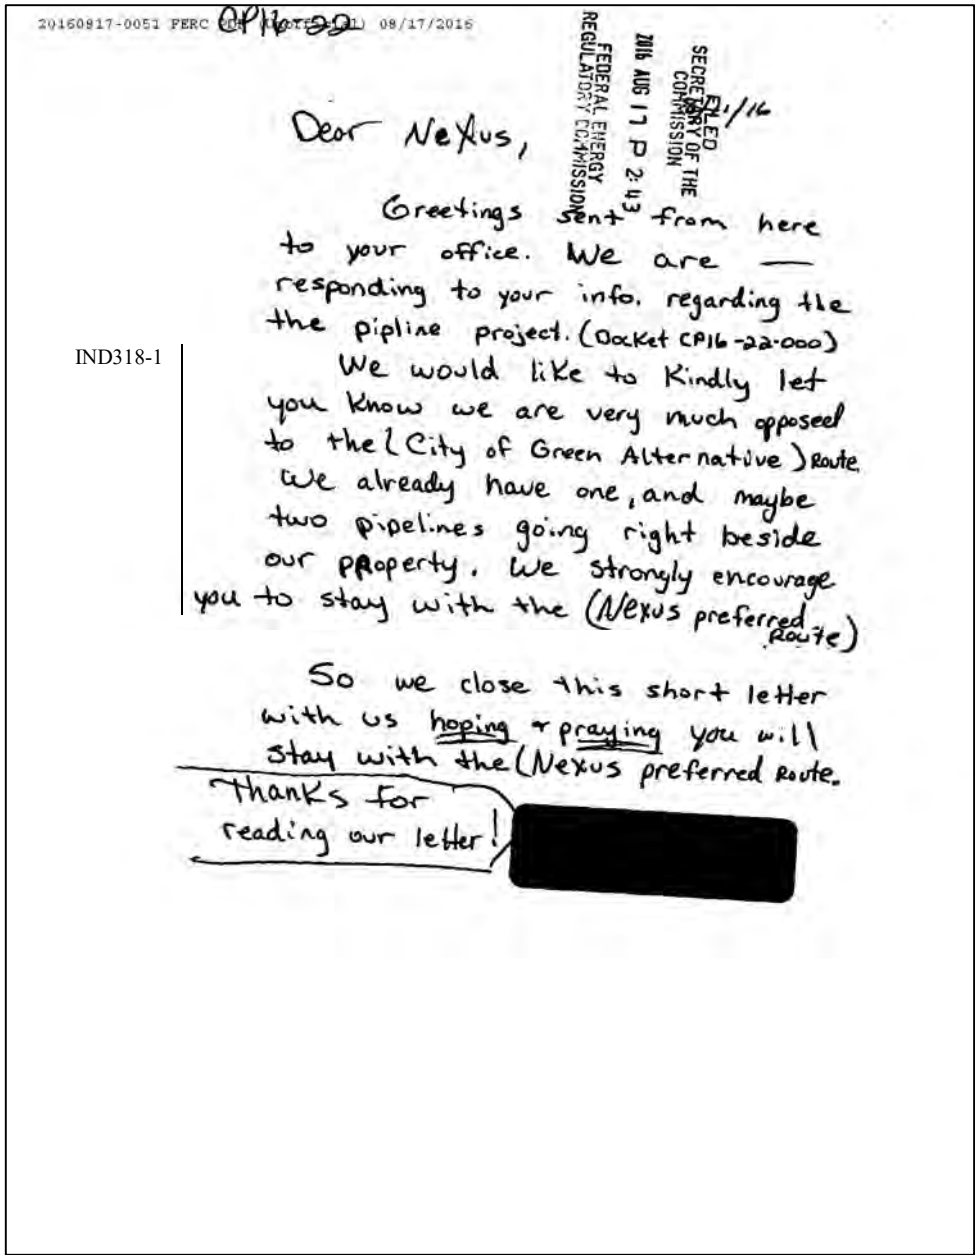 20160817-0051 FERC PDF (Unofficial) 08/17/2016
CP16-22
FILED
SECRETARY OF THE
COMMISSION
2016 AUG 17 P 2:43
FEDERAL ENERGY
REGULATORY COMMISSION
Dear Nexus,
Greetings sent from here
to your office. We are —
responding to your info. regarding the
the pipline project. (Docket CP16-22-000)
IND318-1
We would like to Kindly let
you know we are very much opposed
to the (City of Green Alternative) Route.
We already have one, and maybe
two pipelines going right beside
our property. We strongly encourage
you to stay with the (Nexus preferred
Route)
So we close this short letter
with us hoping + praying you will
stay with the (Nexus preferred Route.
Thanks for
reading our letter!